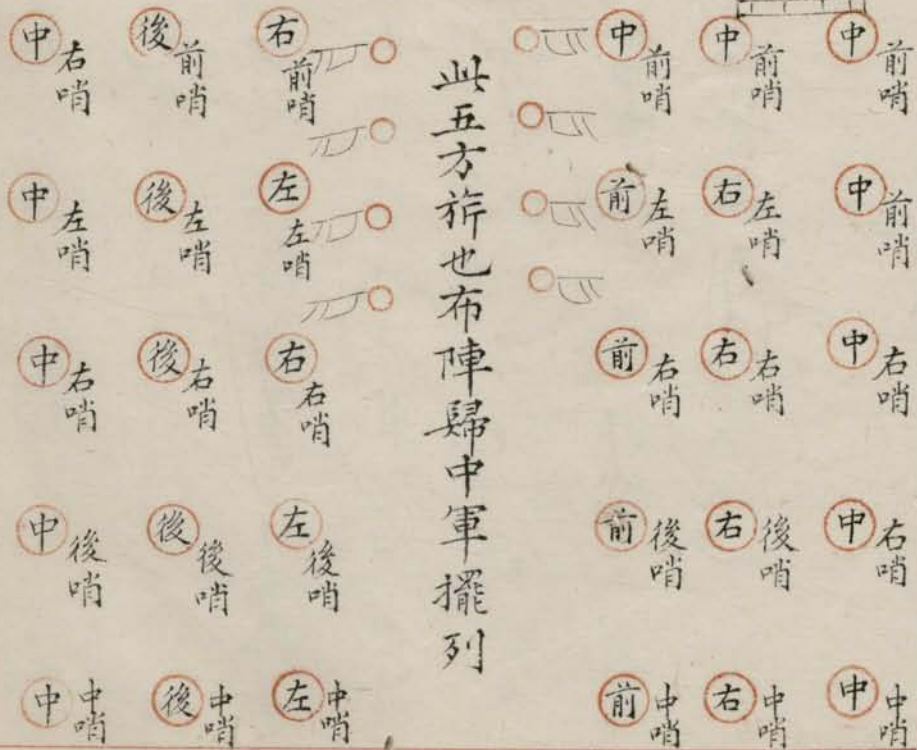 中 前哨
中 前哨
中 右哨
中 右哨
中 中哨
中 前哨
右 左哨
右 右哨
右 後哨
右 中哨
中 前哨
前 左哨
前 右哨
前 後哨
前 中哨
此五方旂也布陣歸中軍擺列
右 前哨
左 左哨
右 右哨
左 後哨
左 中哨
後 前哨
後 左哨
後 右哨
後 後哨
後 中哨
中 右哨
中 左哨
中 右哨
中 後哨
中 中哨